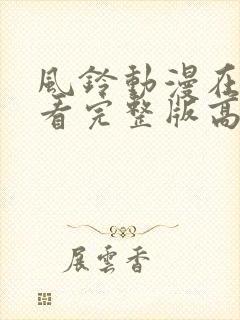 風鈴動漫在
看完整版高
展雲香